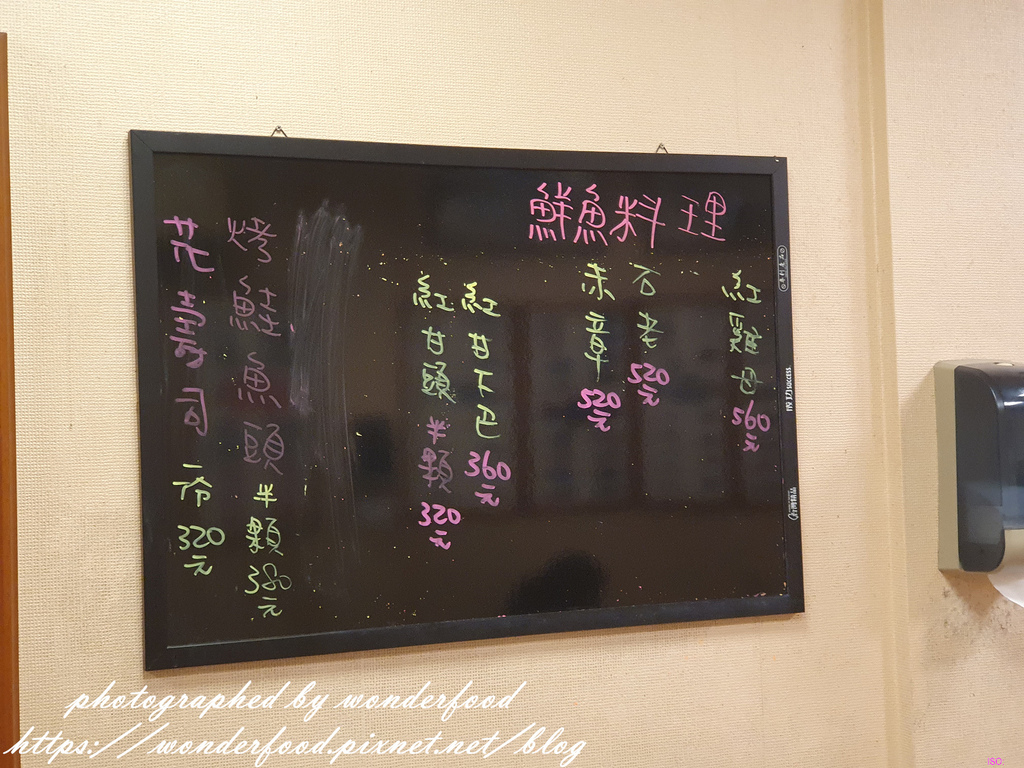 鮮魚料理
紅雞母 560元
石老 520元
赤章 520元
紅甘下巴 360元
紅甘頭 半顆 320元
烤鮮魚頭 半顆 380元
花壽司 一份 320元
成功 success
台灣精品
photographed by wonderfood
https://wonderfood.pixnet.net/blog